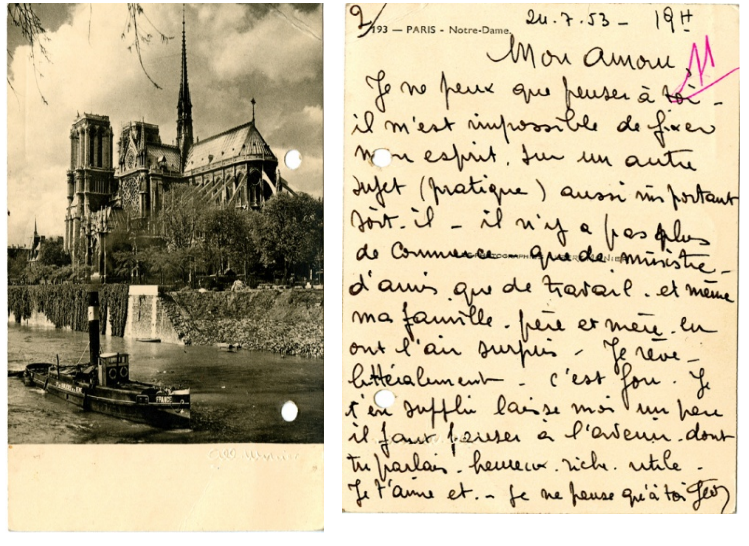 FRANCE
2/ 24.7.53 - 19H
193 — PARIS - Notre-Dame.
Mon amour,
11
Je ne peux que penser à toi -
il m'est impossible de fixer
mon esprit. sur un autre
sujet (pratique) aussi important
soit-il - il n'y a pas plus
de commerce que de ministre -
d'amis que de travail. et même
ma famille. père et mère. en
ont l'air surpris - Je rêve -
littéralement - c'est fou. Je
t'en supplie laisse moi un peu
il faut penser à l'avenir. dont
tu parlais. heureux. riche. utile -
Je t'aime et.- je ne pense qu'à toi Geo